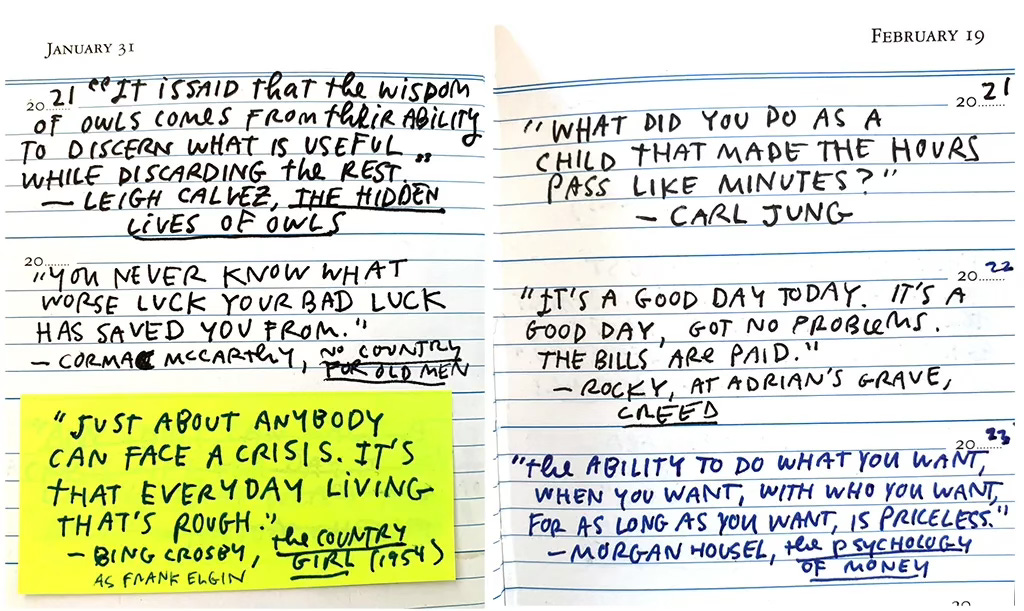 JANUARY 31
20 21 "IT IS SAID that the WISDOM
OF OWLS COMES FROM thEIR ABILITY
TO DISCERN WHAT IS USEFUL
WHILE DISCARDING the REST."
— LEIGH CALVEZ, THE HIDDEN
LIVES OF OWLS
20
"YOU NEVER KNOW WHAT
WORSE LUCK YOUR BAD LUCK
HAS SAVED YOU FROM."
— CORMAC MCCARthy, NO COUNTRY
FOR OLD MEN
"JUST ABOUT ANYBODY
CAN FACE A CRISIS. IT'S
tHAT EVERYDAY LIVING
THAT'S ROUGH."
— BING CROSBY, the COUNTRY
GIRL (1954)
AS FRANK ELGIN
FEBRUARY 19
20 21
"WHAT DID YOU DO AS A
CHILD THAT MADE THE HOURS
PASS LIKE MINUTES?"
— CARL JUNG
20 22
"IT'S A GOOD DAY TODAY. IT'S A
GOOD DAY, GOT NO PROBLEMS.
THE BILLS ARE PAID."
— ROCKY, AT ADRIAN'S GRAVE,
CREED
20 23
"the ABILITY TO DO WHAT YOU WANT,
WHEN YOU WANT, WITH WHO YOU WANT,
FOR AS LONG AS YOU WANT, IS PRICELESS."
— MORGAN HOUSEL, the PSYCHOLOGY
OF MONEY
20